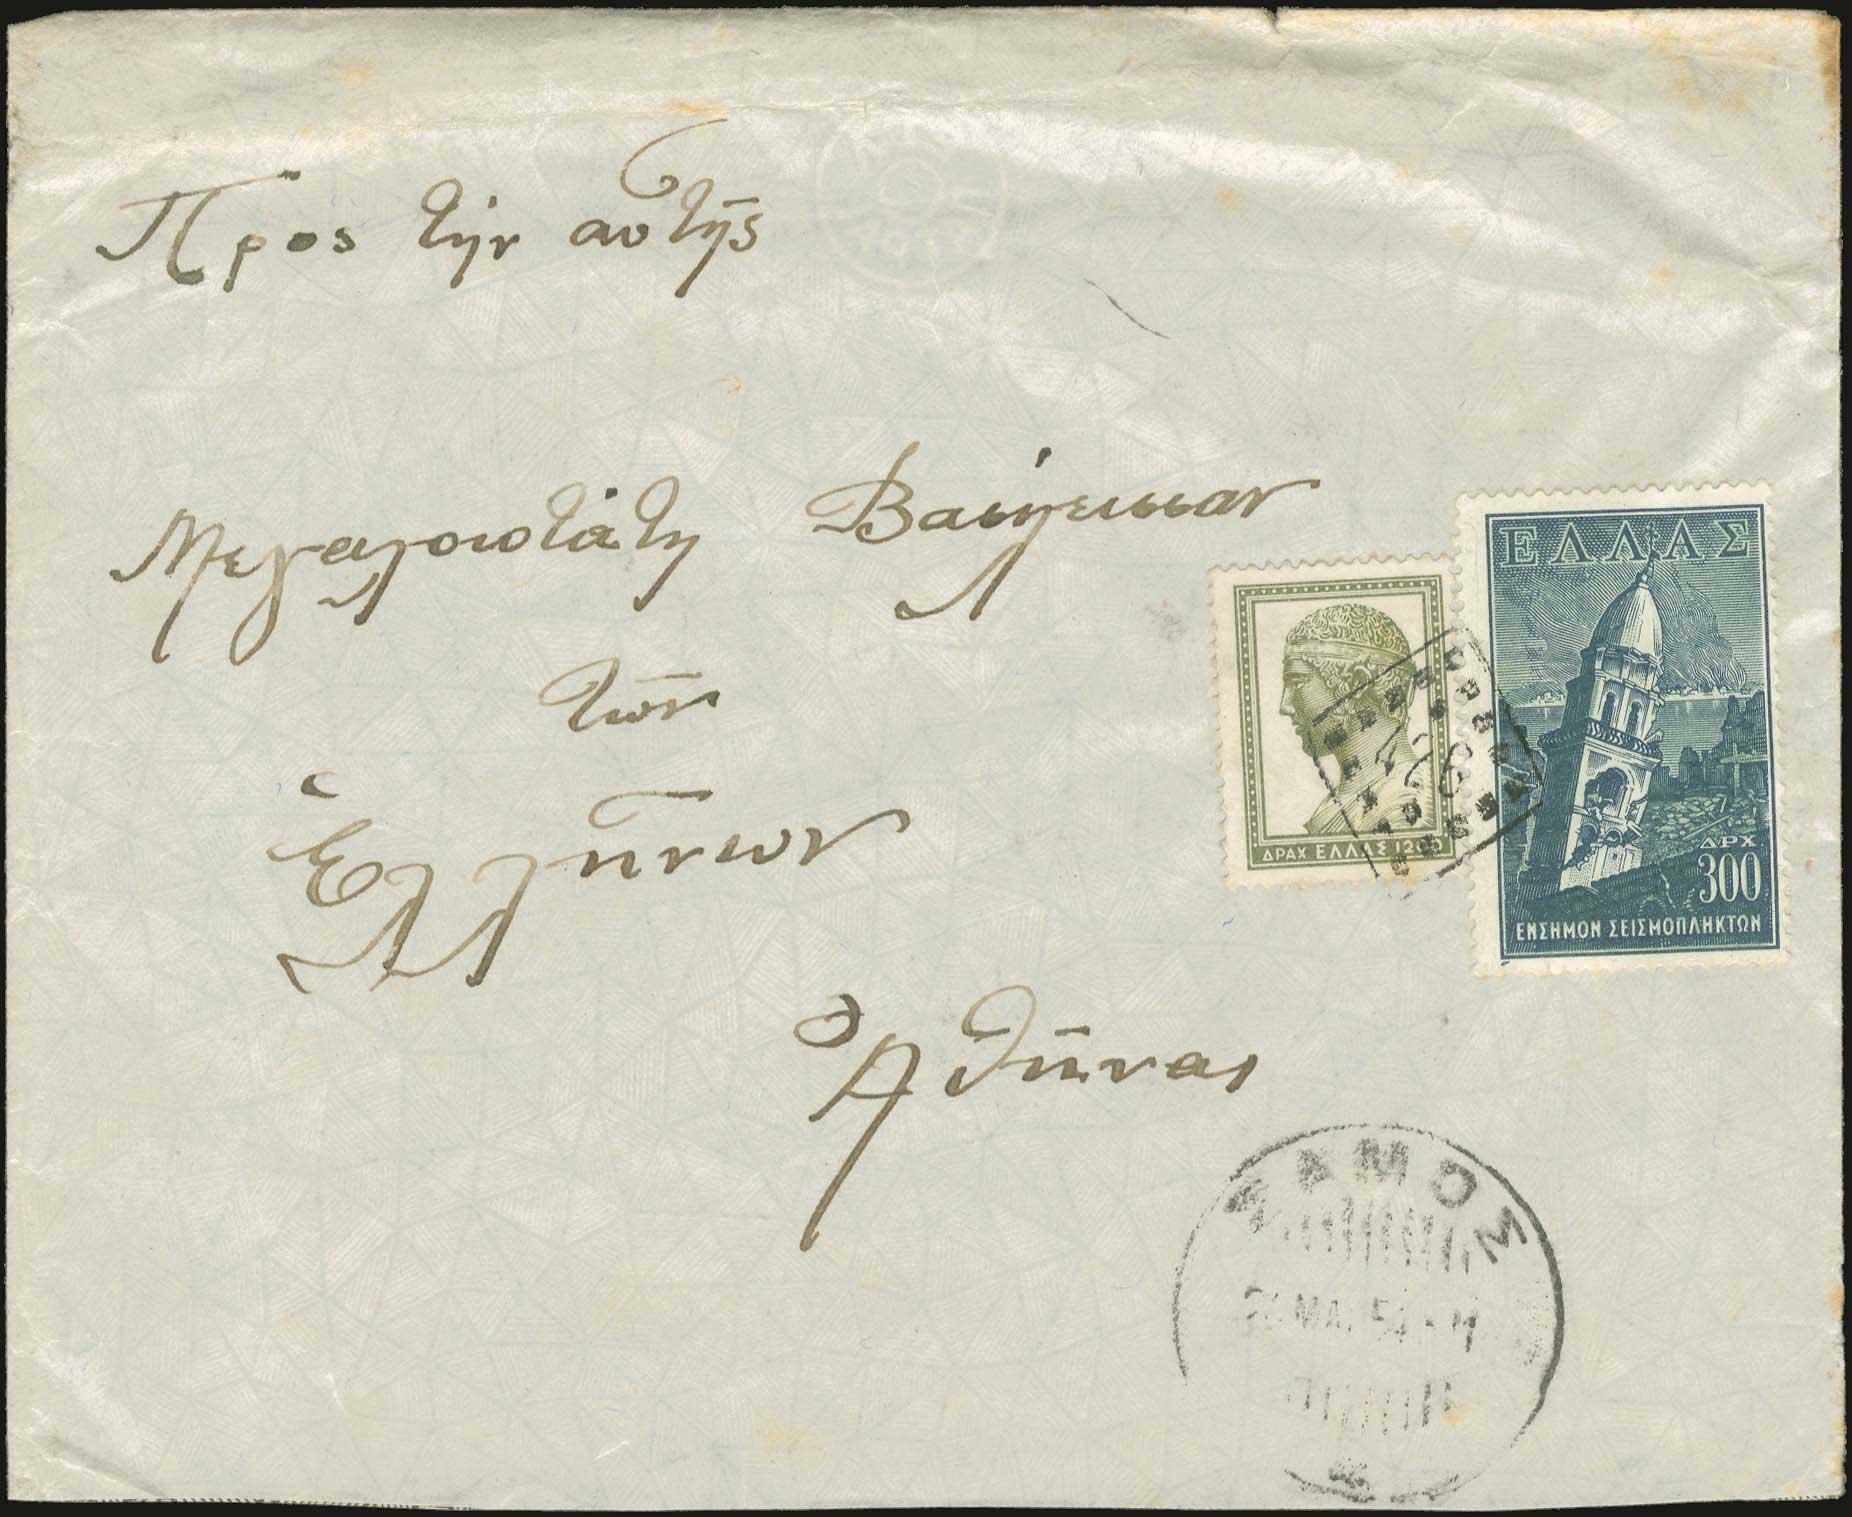 Πρός τήν αὐτῆς
Μεγαλοιοτάτη Βασήλεισσαν
τῶν
Ἑλλήνων
Ἀθήνας
ΕΛΛΑΣ
ΔΡΧ
300
ΕΝΣΗΜΟΝ ΣΕΙΣΜΟΠΛΗΚΤΩΝ
ΔΡΑΧ ΕΛΛΑΣ 1200
ΣΑΜΟΣ